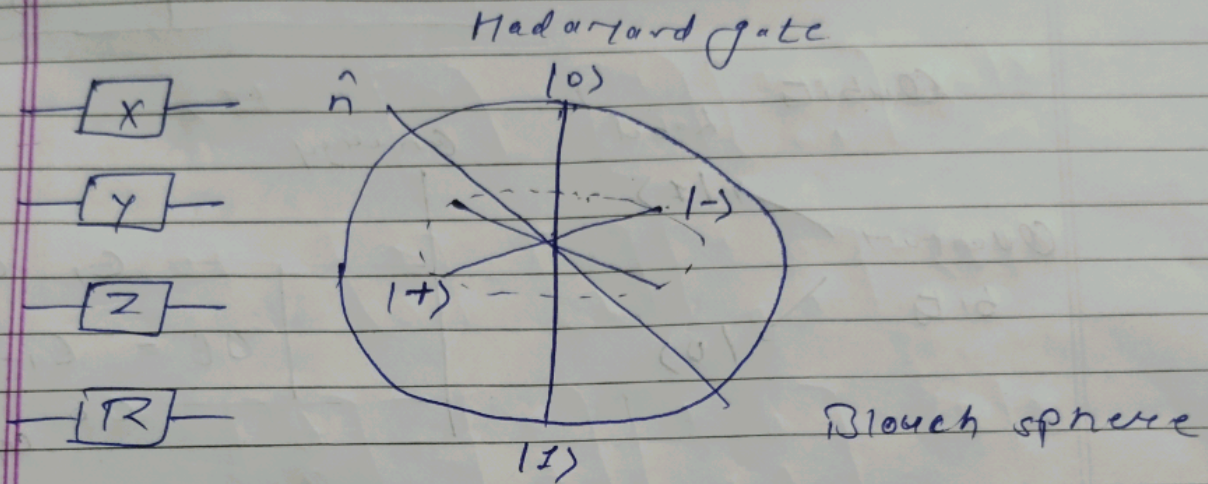 Hadamard gate
X
n̂
|0⟩
Y
|-⟩
|+⟩
Z
R
Blouch sphere
|1⟩